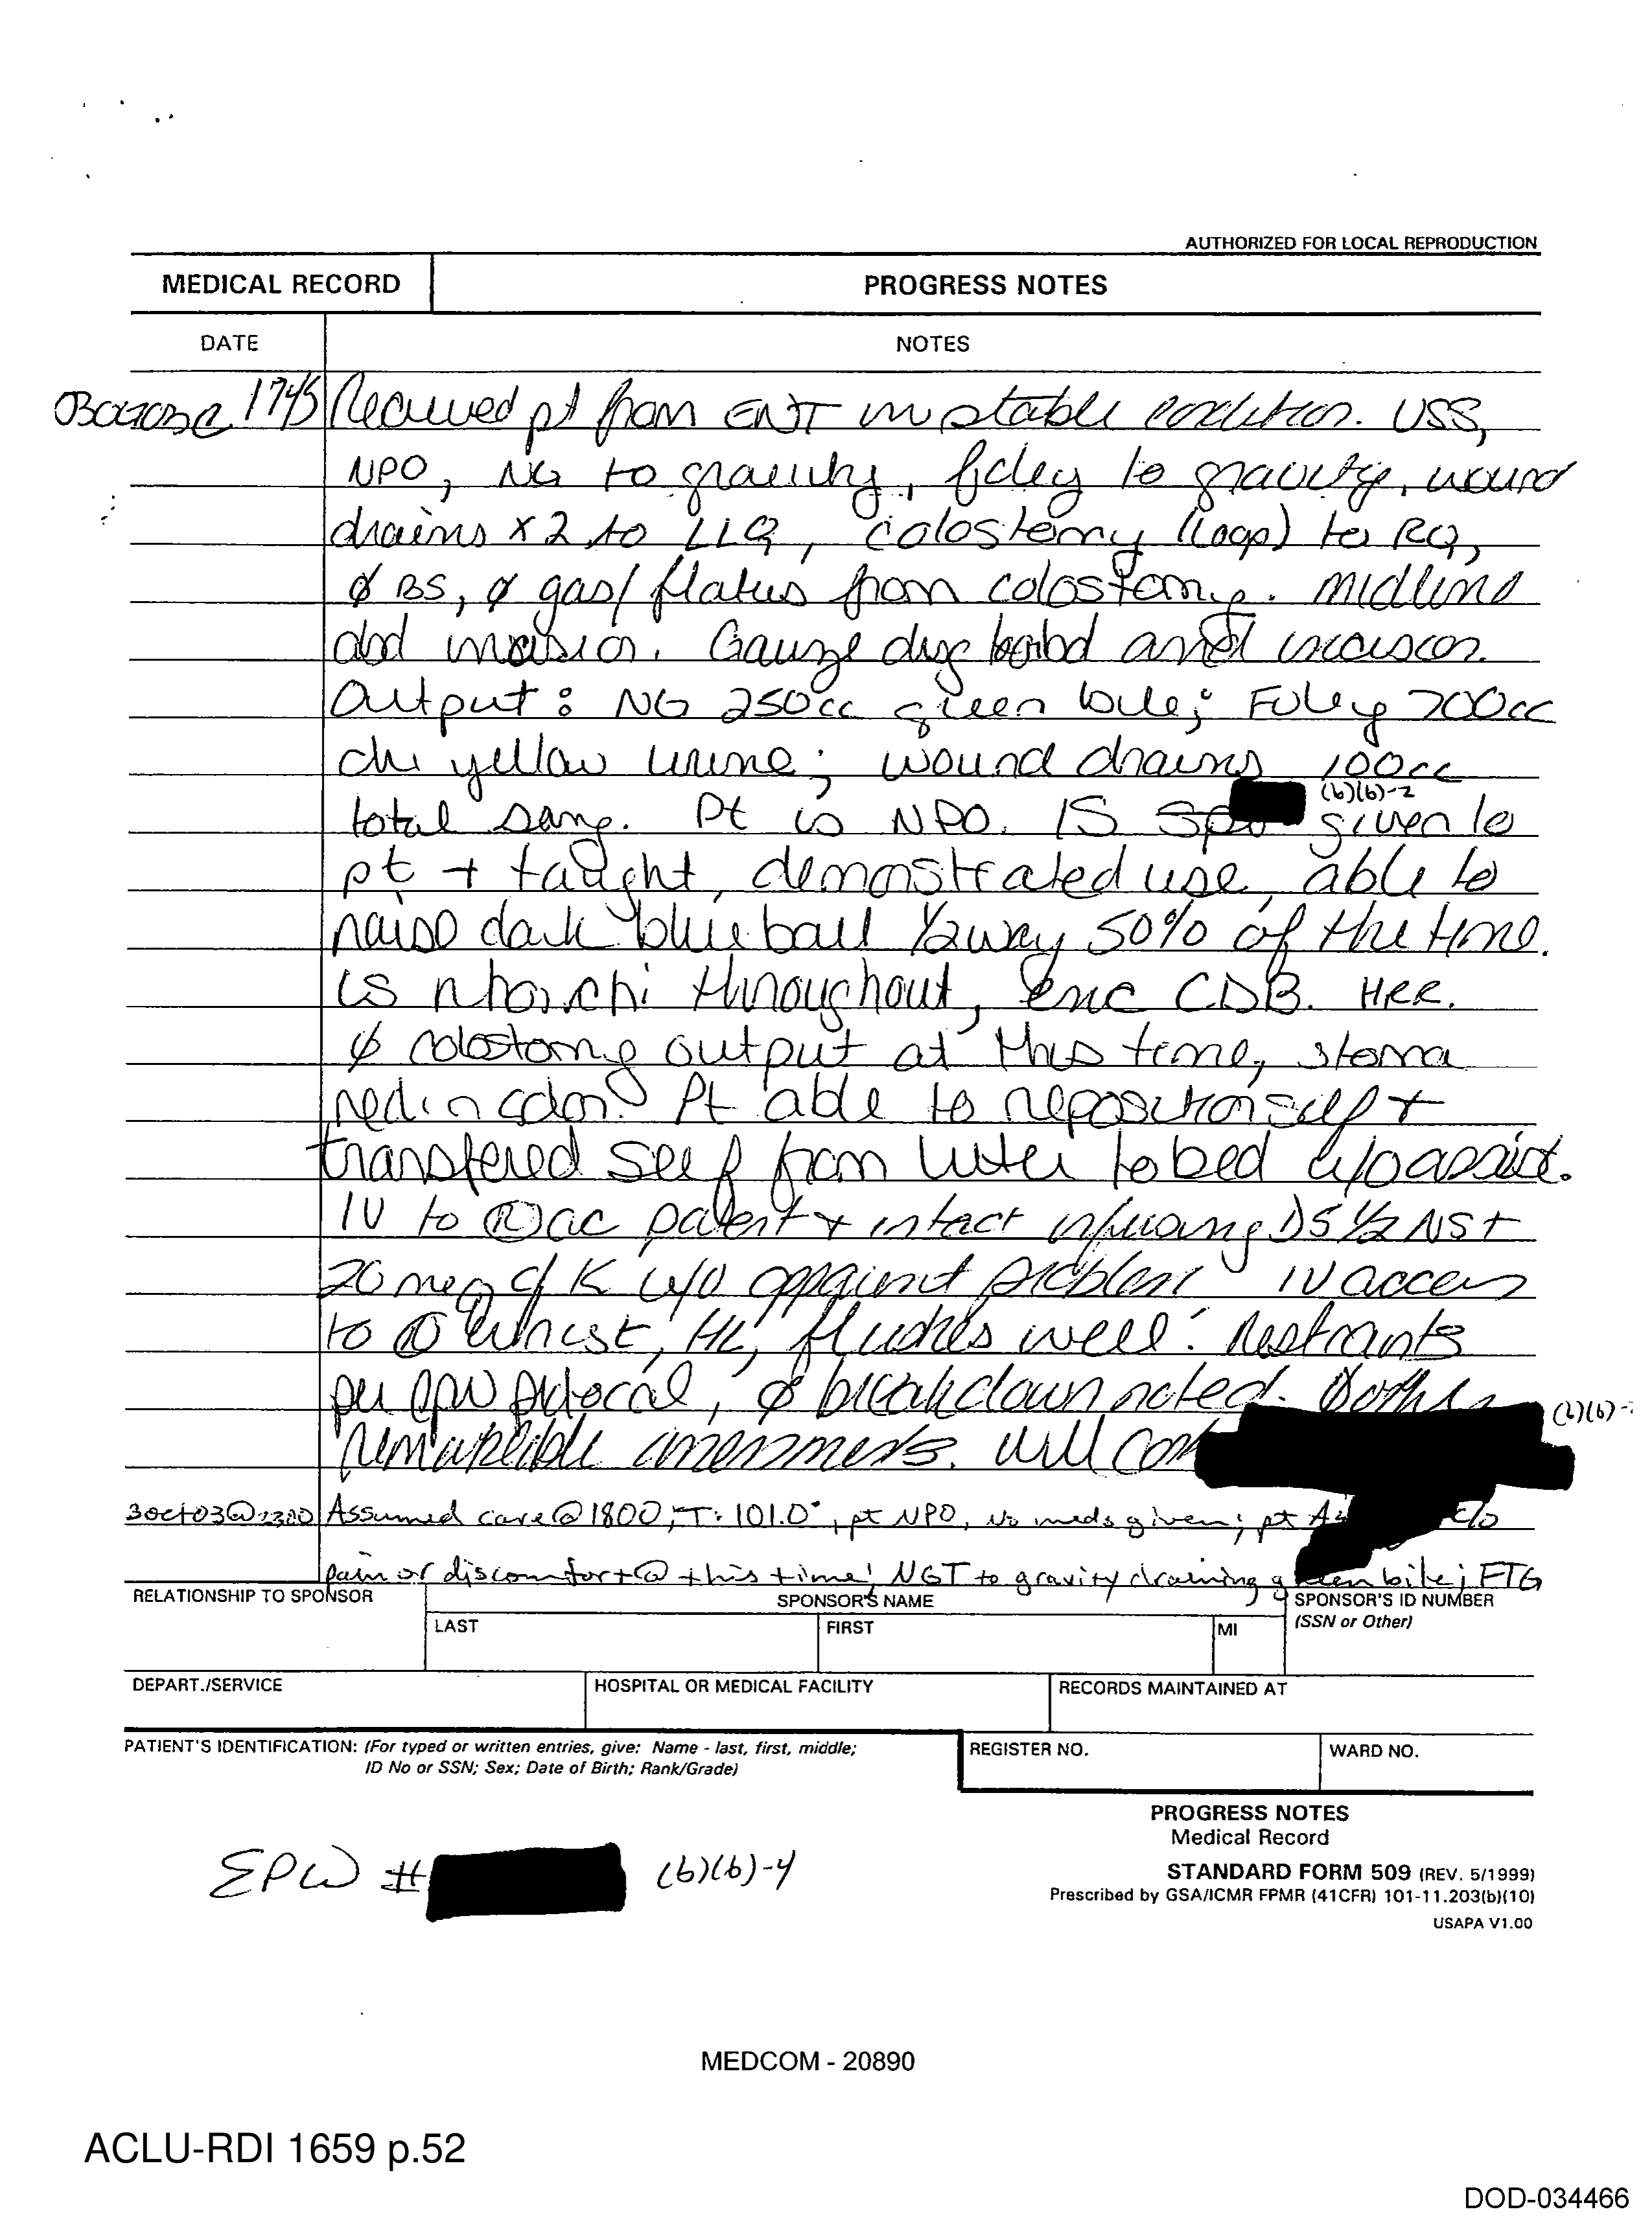 AUTHORIZED FOR LOCAL REPRODUCTION
MEDICAL RECORD PROGRESS NOTES
DATE NOTES
1745 Received pt from ENT in stable condition. VSS,
NPO, NG to gravity, foley to gravity, wound
drains x 2 to LLQ, colostomy (loop) to RQ,
Ø BS, Ø gas/flatus from colostomy. midline
abd incision. Gauze dsg incision.
Output: NG 250cc green bile; Foley 700cc
yellow urine; wound drains 100cc
(b)(6)-2
total sang. Pt is NPO. IS given to
pt + taught, demonstrated use, able to
raise dark blue ball 1/2 way 50% of the time.
LS rhonchi throughout, enc CDB. HRR.
Ø colostomy output at this time, stoma
red in color. Pt able to reposition self +
transfered self from litter to bed w/o assist.
IV to Ⓡ ac patent + intact infusing D5 1/2 NS +
20 meq of K w/o apparent problem IV access
to wrist, HL, flushes well. Restraints
per EPW protocol, Ø breakdown noted.
(b)(6)-2
will
3Oct03@2300 Assumed care @ 1800; T: 101.0°, pt NPO, no meds given; pt c/o
pain or discomfort @ this time; NGT to gravity draining green bile; FTG
RELATIONSHIP TO SPONSOR SPONSOR'S NAME SPONSOR'S ID NUMBER
LAST FIRST MI (SSN or Other)
DEPART./SERVICE HOSPITAL OR MEDICAL FACILITY RECORDS MAINTAINED AT
PATIENT'S IDENTIFICATION: (For typed or written entries, give: Name - last, first, middle; REGISTER NO. WARD NO.
ID No or SSN; Sex; Date of Birth; Rank/Grade)
PROGRESS NOTES
Medical Record
EPW # (b)(6)-4
STANDARD FORM 509 (REV. 5/1999)
Prescribed by GSA/ICMR FPMR (41CFR) 101-11.203(b)(10)
USAPA V1.00
MEDCOM - 20890
ACLU-RDI 1659 p.52
DOD-034466